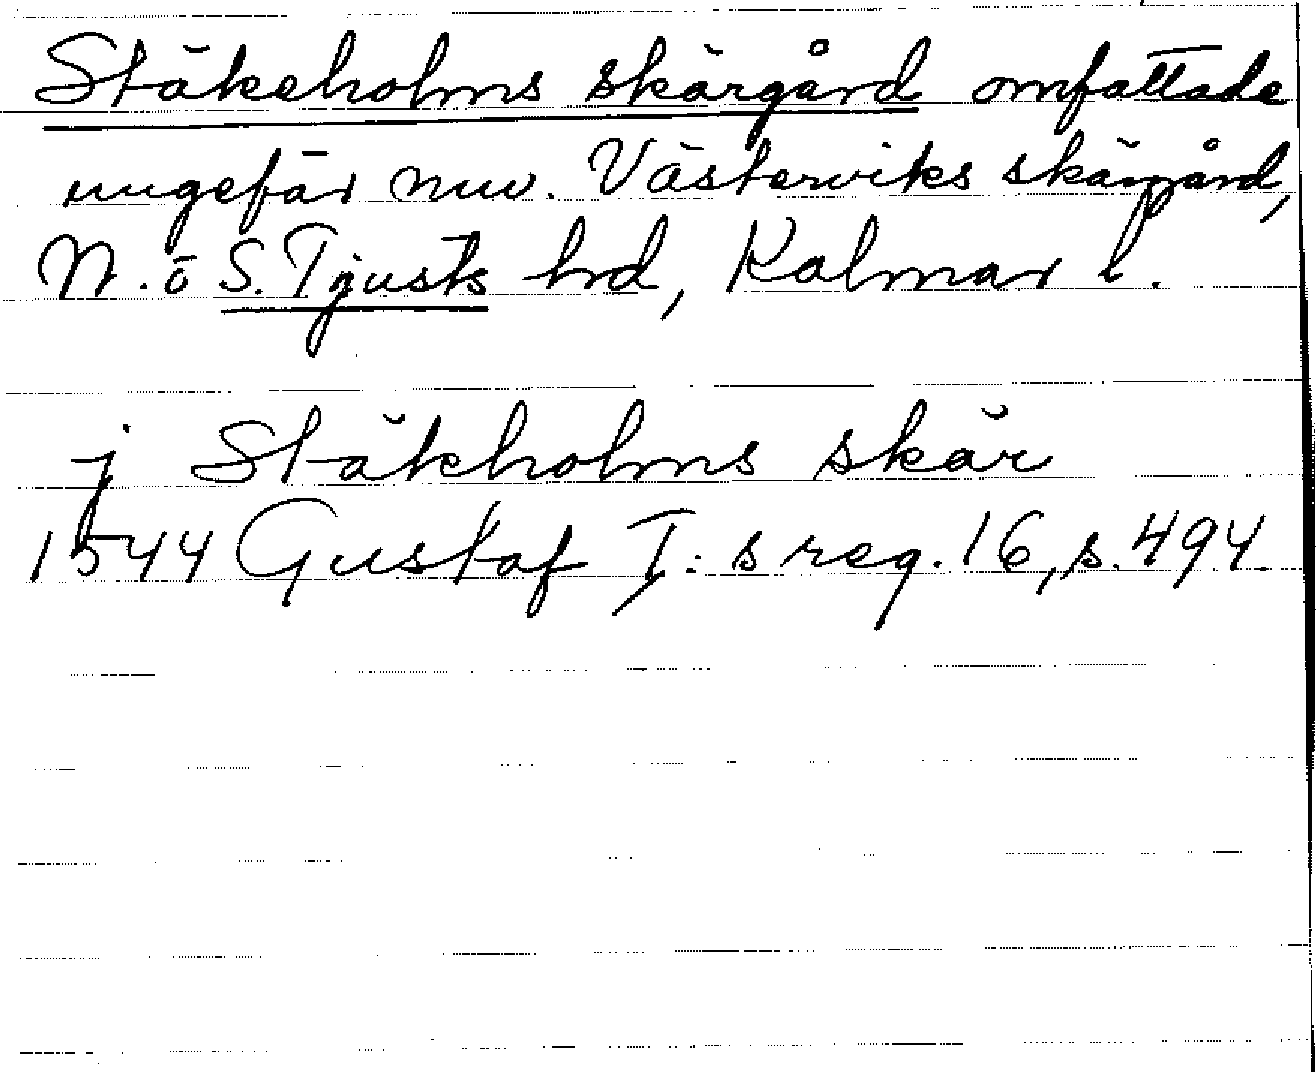 Stäkeholms skärgård omfattade
ungefär nuv. Västerviks skärgård,
N. o S. Tjusts hd, Kalmar l.
j Stäkeholms skär
1544 Gustaf I:s reg. 16, s. 494.